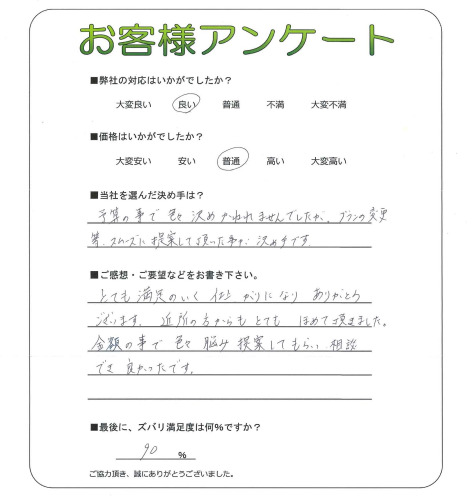 お客様アンケート
■弊社の対応はいかがでしたか？
大変良い 良い 普通 不満 大変不満
■価格はいかがでしたか？
大変安い 安い 普通 高い 大変高い
■当社を選んだ決め手は？
予算の事で色々決めかねれませんでしたが、プランの変更
等、スムーズに提案して頂いた事が決め手です。
■ご感想・ご要望などをお書き下さい。
とても満足のいく仕上がりになりありがとう
ございます。近所の方からもとてもほめて頂きました。
金額の事で色々悩み提案してもらい相談
でき良かったです。
■最後に、ズバリ満足度は何%ですか？
90 %
ご協力頂き、誠にありがとうございました。